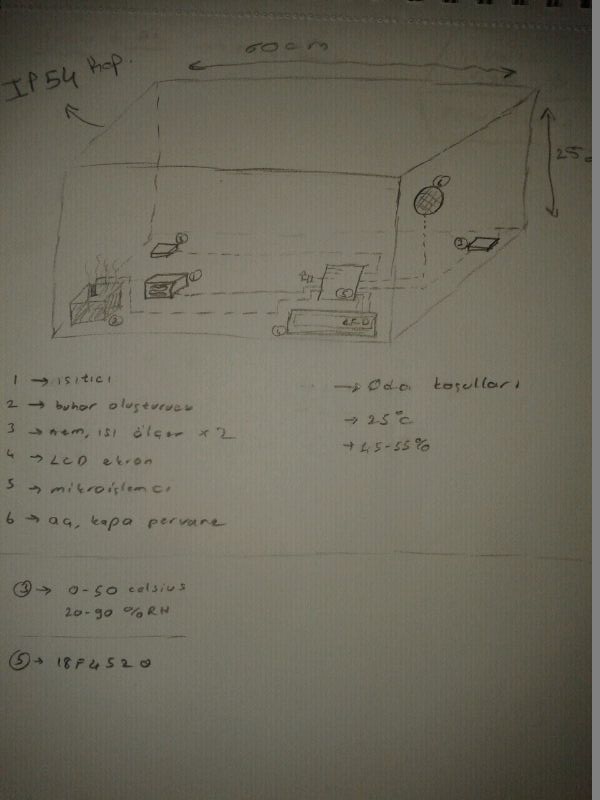 IP54 Kap.
60cm
25
1 → ısıtıcı
2 → buhar oluşturucu
3 → nem, ısı ölçer x2
4 → LCD ekran
5 → mikroişlemci
6 → aç, kapa pervane
→ Oda koşulları
→ 25°C
→ 45-55%
③ → 0-50 celsius
20-90 %RH
⑤ → 18F4520